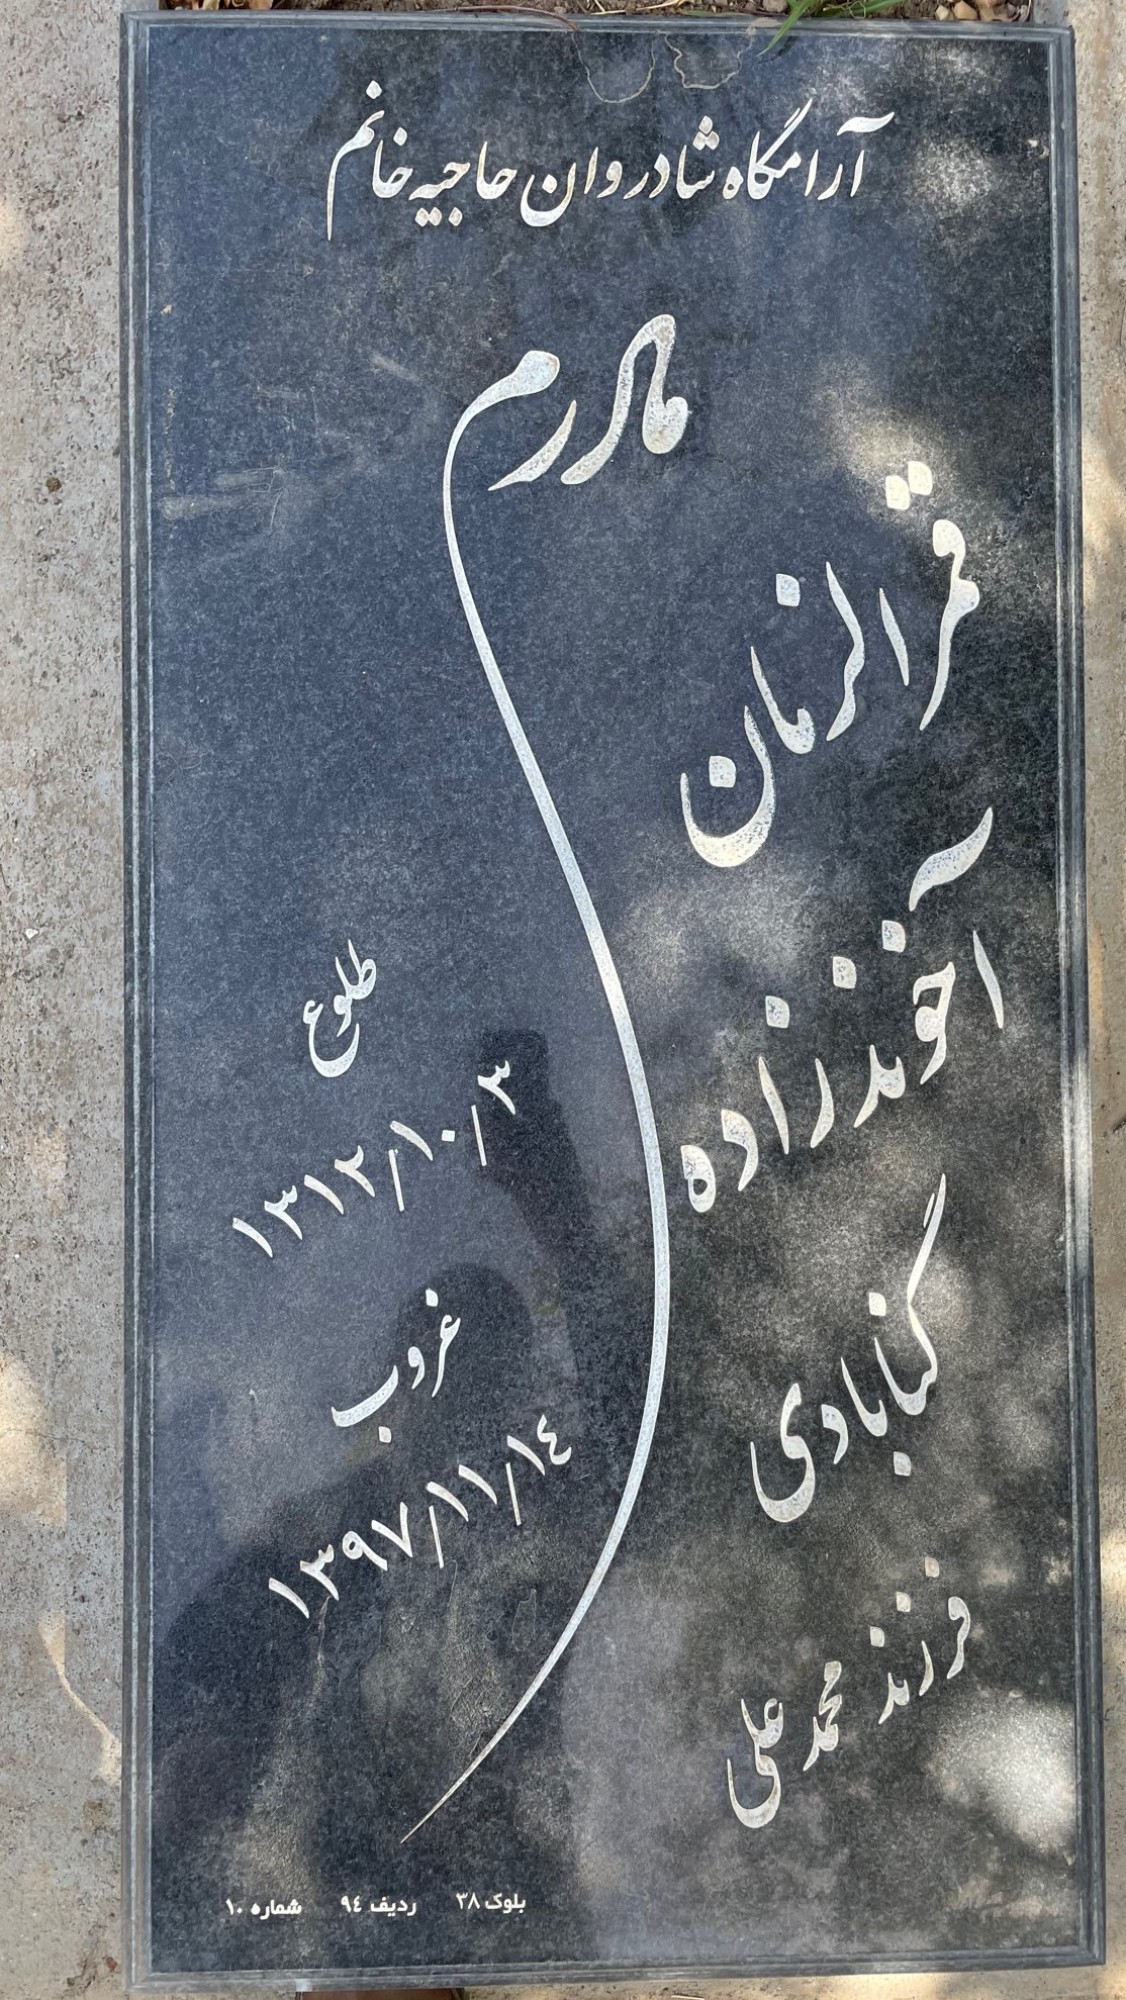 آرامگاه شادروان حاجیه خانم
مادرم
قمر الزمان
آخوندزاده
گنابادی
فرزند محمد علی
طلوع
۱۳۱۲/۱۰/۳
غروب
۱۳۹۷/۱۱/۱٤
بلوک ۳۸ ردیف ۹٤ شماره ۱۰